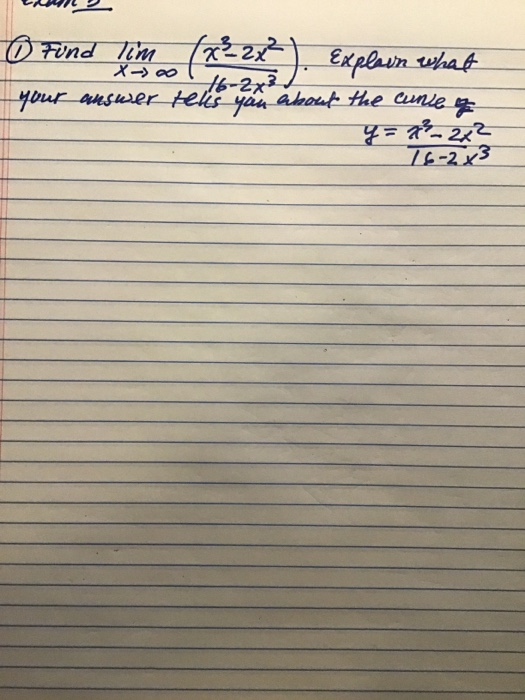 Exam 3
① Find lim x→∞ (x³-2x² / 16-2x³). Explain what
your answer tells you about the curve of
y = x³-2x² / 16-2x³